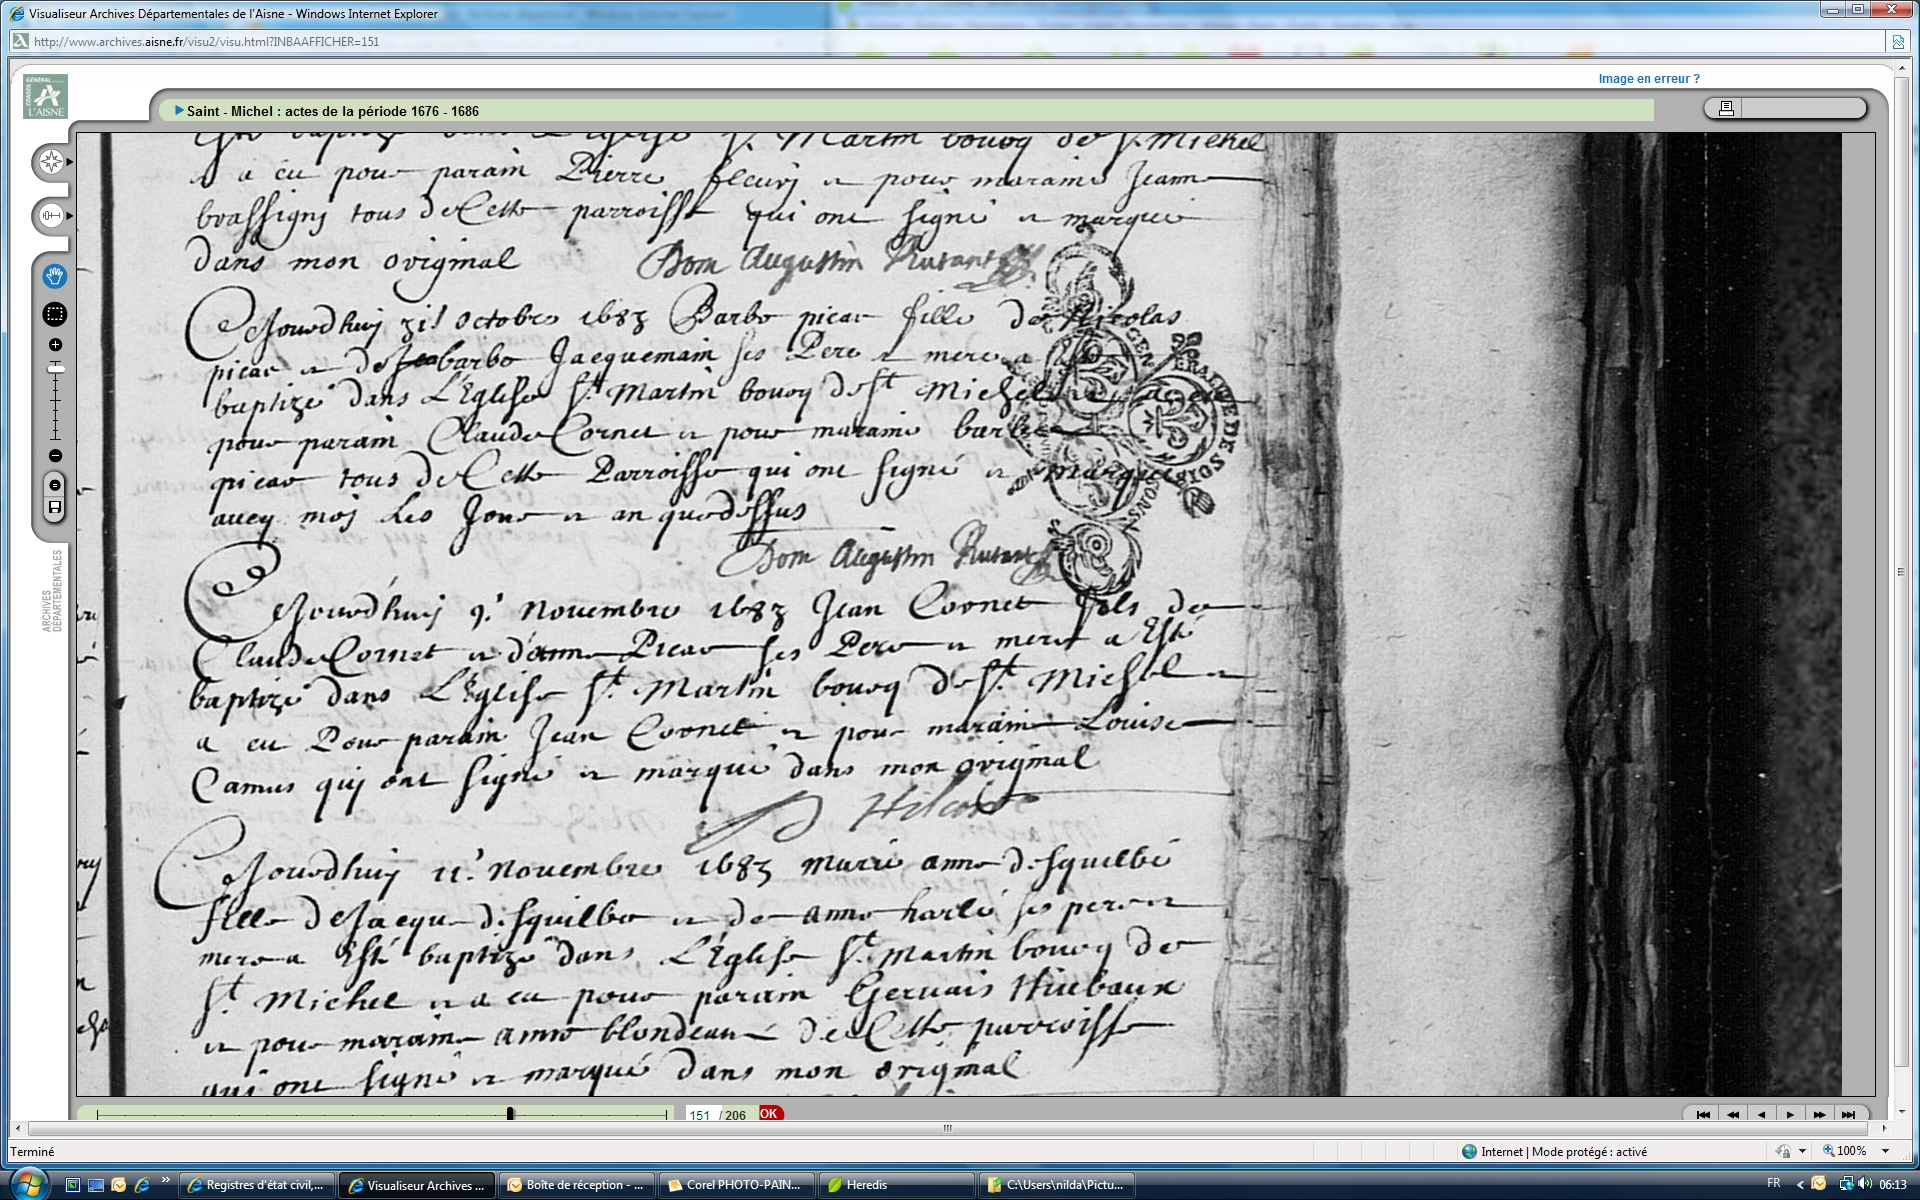 Visualiseur Archives Départementales de l'Aisne - Windows Internet Explorer
http://www.archives.aisne.fr/visu2/visu.html?INBAAFFICHER=151
Image en erreur ?
GÉNÉRAL
CONSEIL
L'AISNE
Saint - Michel : actes de la période 1676 - 1686
Este baptizé dans L'Eglise St. Martin bourq de St. Michel
a eu pour parain Pierre fleury et pour maraine Jeanne
brassigny tous de Cette parroisse qui ont signé et marqué
dans mon original Dom Augustin Rutant
Cejourdhuy 31e octobre 1683 Barbe picar fille de Nicolas
picar et de barbe Jacquemain ses Pere et mere a
baptizé dans L'Eglise St. Martin bourq de St Michel
pour parain Claude Cornet et pour maraine barbe
picar tous de Cette Parroisse qui ont signé et marqué
avecq moj les Jour et an que dessus
Dom Augustin Rutant
GENERALITE DE SOISSONS
Cejourdhuy 9e. Novembre 1683 Jean Cornet fils de
Claude Cornet et d'anne Picar ses Pere et mere a Esté
baptizé dans L'Eglise St. Martin bourq de St. Michel et
a eu Pour parain Jean Cornet et pour maraine Louise
Camus qui ont signé et marqué dans mon original
Cejourdhuy 11e. Novembre 1683 marie anne desquilbé
fille de Jacque desquilbe et de anne harlé ses pere et
mere a Esté baptizé dans L'Eglise St. Martin bourq de
St Michel et a eu pour parain Gervais Hiubaux
et pour maraine anne blondeau de Cette parroisse
qui ont signé et marqué dans mon original
ARCHIVES
DEPARTEMENTALES
151 / 206 OK
Terminé
Internet | Mode protégé : activé
100%
Registres d'état civil,...
Visualiseur Archives ...
Boîte de réception - ...
Corel PHOTO-PAIN...
Heredis
C:\Users\nilda\Pictu...
FR
06:13